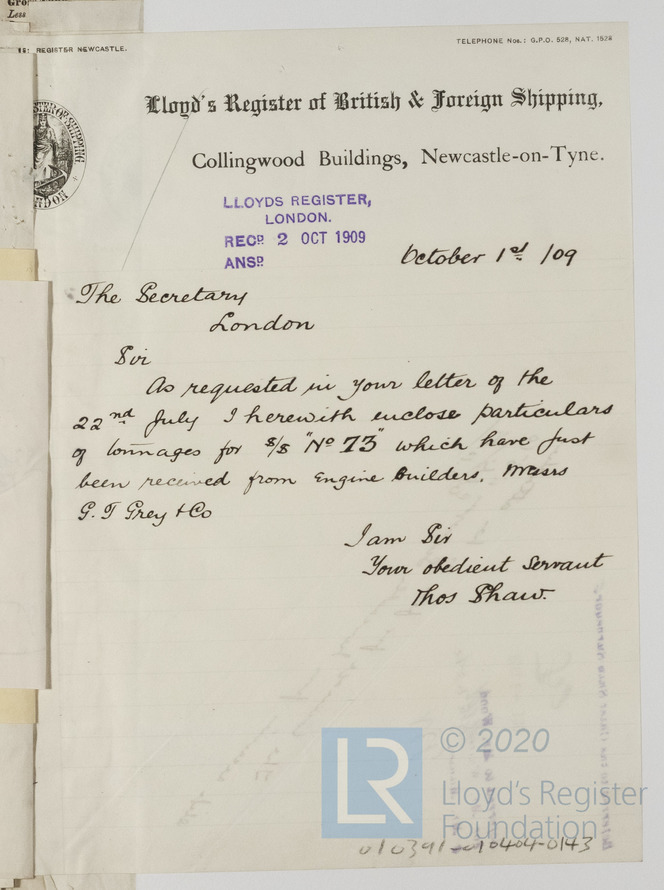 Less
REGISTER NEWCASTLE.
TELEPHONE Nos.: G.P.O. 528, NAT. 1529
Lloyd's Register of British & Foreign Shipping,
Collingwood Buildings, Newcastle-on-Tyne.
LLOYDS REGISTER,
LONDON.
RECD. 2 OCT 1909
ANSD.
October 1st /09
The Secretary
London
Sir
As requested in your letter of the
22nd July I herewith enclose particulars
of tonnages for s/s "No 73" which have just
been received from Engine Builders, Messrs
G. T Grey & Co
I am Sir
Your obedient Servant
Thos Shaw.
LR
© 2020
Lloyd's Register
Foundation
010391-010404-0143